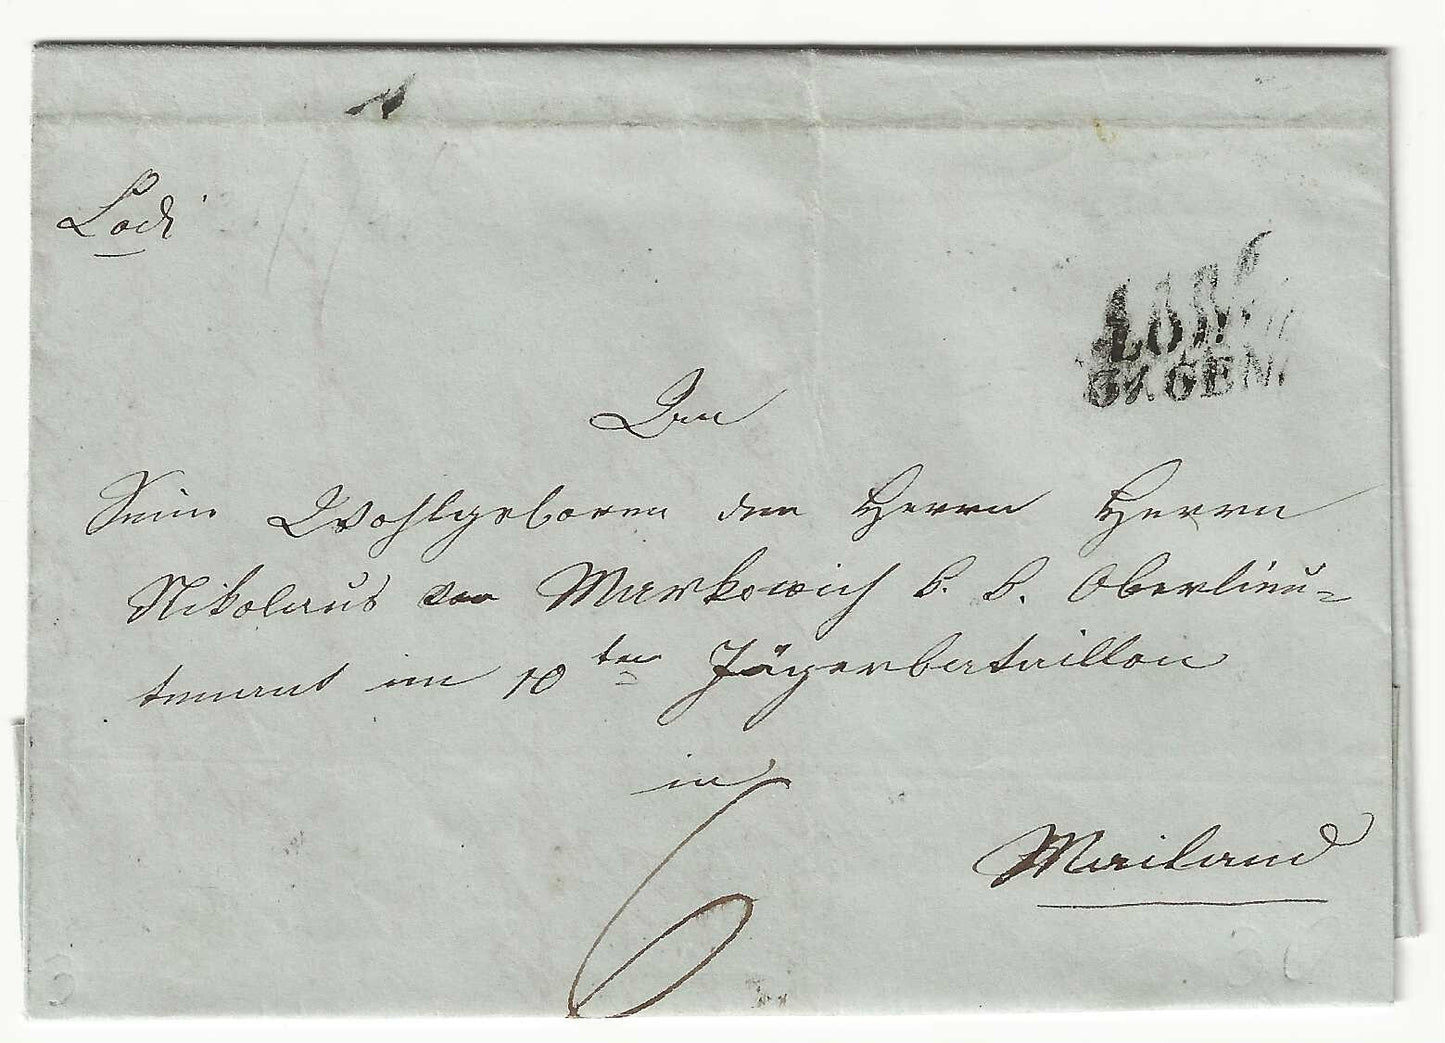 Lodi
LODI
6 GEN.
An
Seine Wohlgeboren den Herrn Herrn
Nikolaus von Markowich k. k. Oberlieu-
tenant im 10ten Jägerbataillon
in
6
Mailand